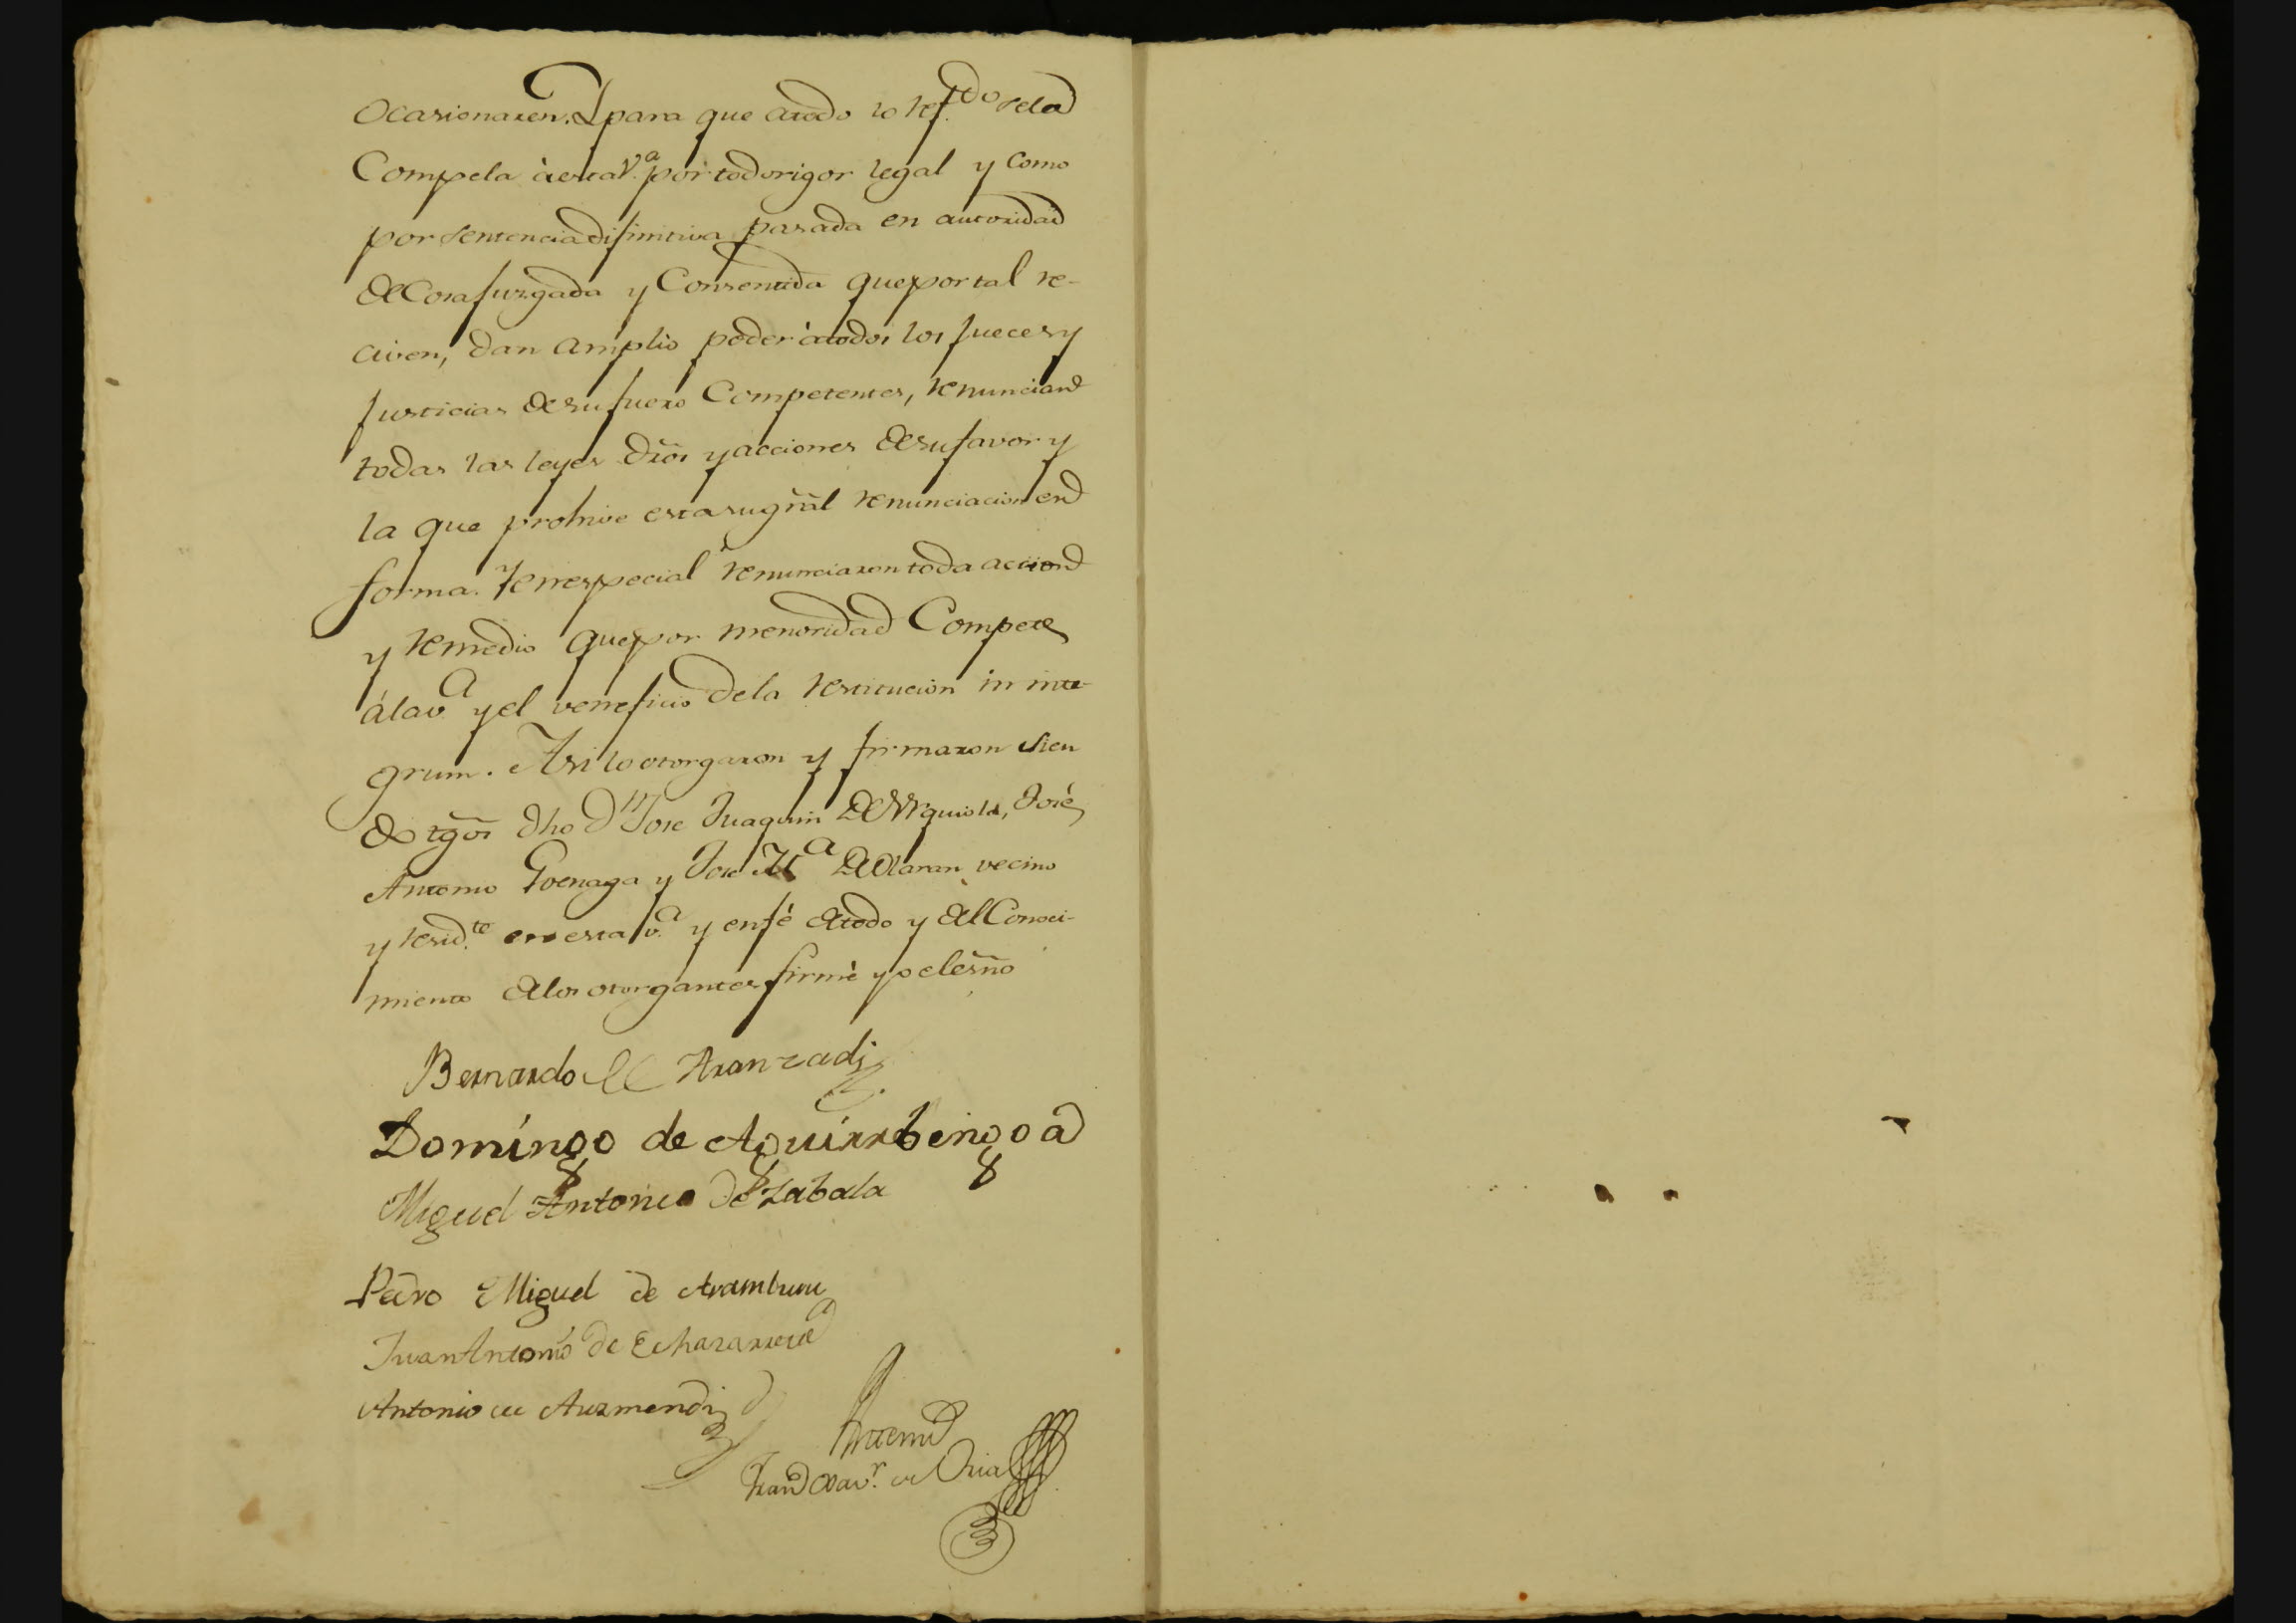 Ocasionaren. Y para que a todo lo ref.do se la
Compela à esta V.a por todo rigor legal y como
por sentencia difinitiva pasada en autoridad
de Cosa Juzgada y Consentida que por tal re-
civen, dan amplio poder à todos los Jueces y
Justicias de su fuero Competentes, renunciand
todas las leyes dros y acciones de su favor y
la que prohive esta su gral renunciacion en
forma. Y en especial renunciaron toda accion
y remedio que por menoridad Compete
á la v.a y el veneficio de la restitucion in inte-
grum. Asi lo otorgaron y firmaron sien
do tgos dho Dn Jose Juaquin de Urquiola, José
Antonio Goenaga y Jose M.a de Olaran vecino
y resid.te en esta v.a y en fé de todo y del Conoci-
miento de los otorgantes firmè yo el esño
Bernardo de Aranzadi
Domingo de Aguirrebengoa
Miguel Antonio de Zabala
Pedro Miguel de Aramburu
Juan Antonio de Echazarreta
Antonio de Auzmendi
Antemi
Fran Xav.r de Oria